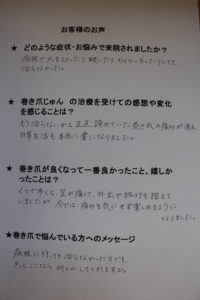 お客様のお声
★ どのような症状・お悩みで来院されましたか?
病院で爪を切ったり 抜いたり、ワイヤーをしたりしても、
治らなかった。
★ 巻き爪じゅん の治療を受けての感想や変化
を感じることは?
もう治らないかと正直 諦めていた巻き爪の痛みが消え
日常生活も本当に楽になりました。
★ 巻き爪が良くなって一番良かったこと、嬉し
かったことは?
くつで歩くと、足が痛くて、外出や旅行を控えて
いましたが、今では、痛みを気にせず楽しめるように
なりました。
★巻き爪で悩んでいる方へのメッセージ
病院に行っても治らなかった方でも
きっとここなら 何とかしてくれますよ。